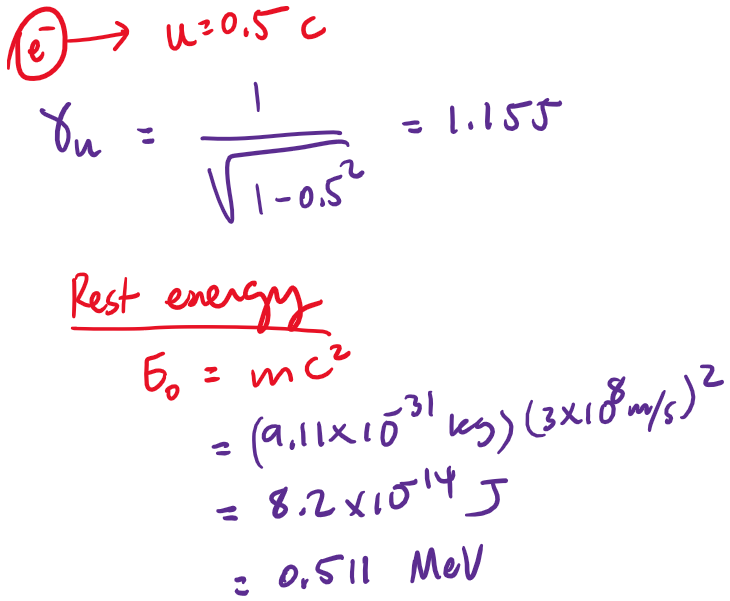 e⁻ → u=0.5 c
γᵤ = 1/√(1-0.5²) = 1.155
Rest energy
E₀ = mc²
= (9.11×10⁻³¹ kg)(3×10⁸ m/s)²
= 8.2×10⁻¹⁴ J
= 0.511 MeV